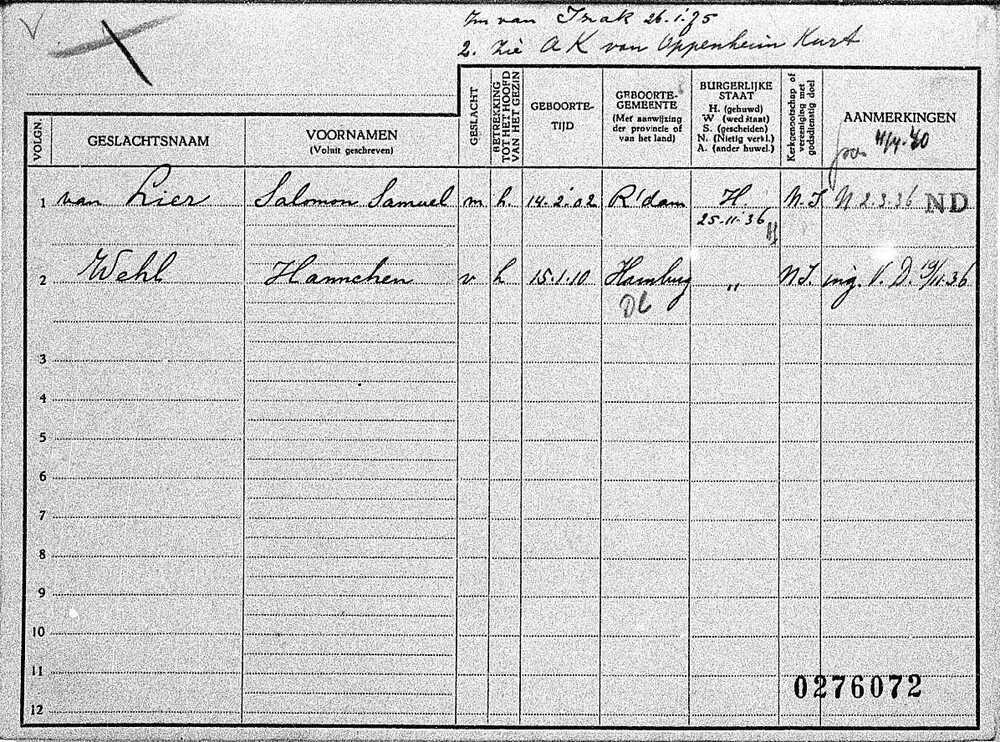 Zn van Izak 26.1.75
2. Zie AK van Oppenheim Kurt
VOLGN.
GESLACHTSNAAM
VOORNAMEN
(Voluit geschreven)
GESLACHT
BETREKKING TOT HET HOOFD VAN HET GEZIN
GEBOORTE-
TIJD
GEBOORTE-
GEMEENTE
(Met aanwijzing
der provincie of
van het land)
BURGERLIJKE
STAAT
H. (gehuwd)
W (wed. staat)
S. (gescheiden)
N. (Nietig verkl.)
A. (ander huwel.)
Kerkgenootschap of vereeniging met godsdienstig doel
AANMERKINGEN
1 van Lier Salomon Samuel m h. 14.2.02 R'dam H. N.I N 2.3.36 ND
25-11-36
2 Wehl Hannchen v h 15.1.10 Hamburg " N.I. ing. V.D. 19/11.36
3
4
5
6
7
8
9
10
11
12
0276072